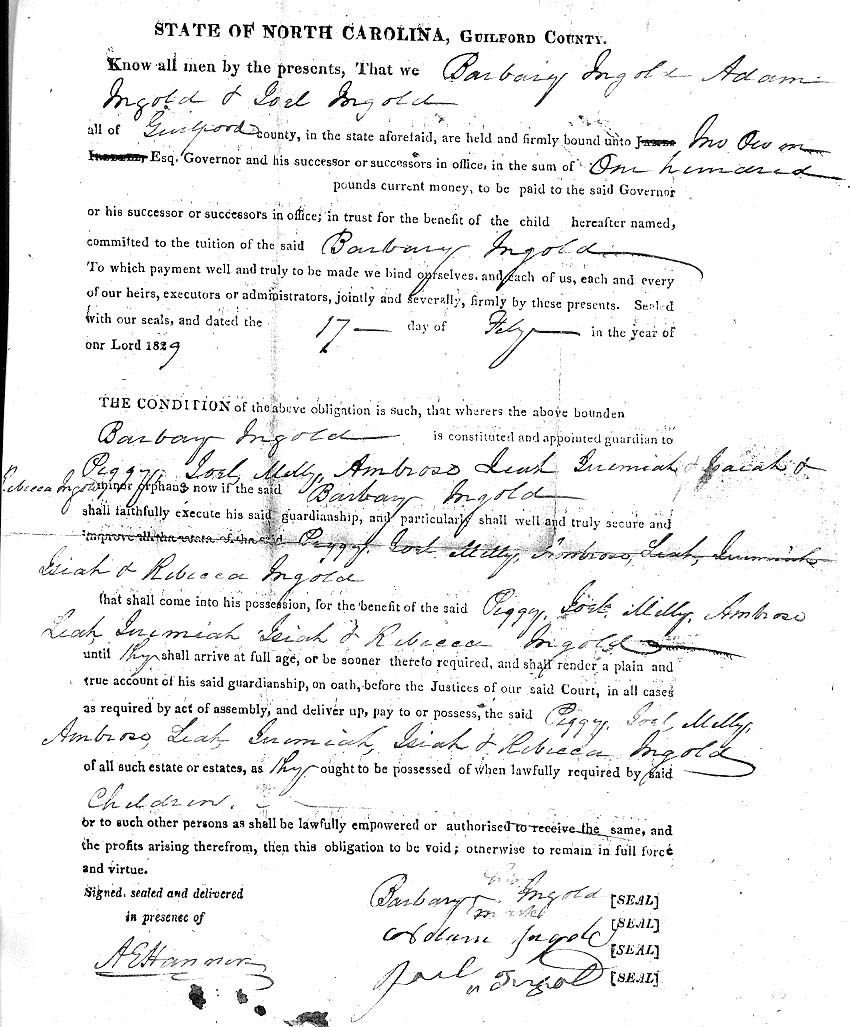 STATE OF NORTH CAROLINA, GUILFORD COUNTY.
Know all men by the presents, That we Barbary Ingold Adam
Ingold & Joel Ingold
all of Guilford county, in the state aforesaid, are held and firmly bound unto James Jno Owen
Esq. Governor and his successor or successors in office, in the sum of One hundred
pounds current money, to be paid to the said Governor
or his successor or successors in office; in trust for the benefit of the child hereafter named,
committed to the tuition of the said Barbary Ingold
To which payment well and truly to be made we bind ourselves. and each of us, each and every
of our heirs, executors or administrators, jointly and severally, firmly by these presents. Sealed
with our seals, and dated the 17 — day of Feby — in the year of
our Lord 1829
THE CONDITION of the above obligation is such, that wherers the above bounden
Barbary Ingold is constituted and appointed guardian to
Peggy, Joel, Milly, Ambrose Leah Jeremiah & Isaiah &
Rebecca Ingold minor orphans now if the said Barbary Ingold
shall faithfully execute his said guardianship, and particularly shall well and truly secure and
improve all the estate of the said Peggy, Joel Milly, Ambrose, Leah, Jeremiah
Isiah & Rebecca Ingold
that shall come into his possession, for the benefit of the said Peggy, Joel, Milly, Ambrose
Leah, Jeremiah Isiah & Rebecca Ingold
until thy shall arrive at full age, or be sooner thereto required, and shall render a plain and
true account of his said guardianship, on oath, before the Justices of our said Court, in all cases
as required by act of assembly, and deliver up, pay to or possess, the said Peggy, Joel, Milly,
Ambrose, Leah, Jeremiah, Isiah & Rebecca Ingold
of all such estate or estates, as thy ought to be possessed of when lawfully required by said
Children.
or to such other persons as shall be lawfully empowered or authorised to receive the same, and
the profits arising therefrom, then this obligation to be void; otherwise to remain in full force
and virtue.
Signed, sealed and delivered
in presence of
A E Hanner
his
Barbary Ingold [SEAL]
mark
Adam Ingold [SEAL]
[SEAL]
Joel Ingold [SEAL]